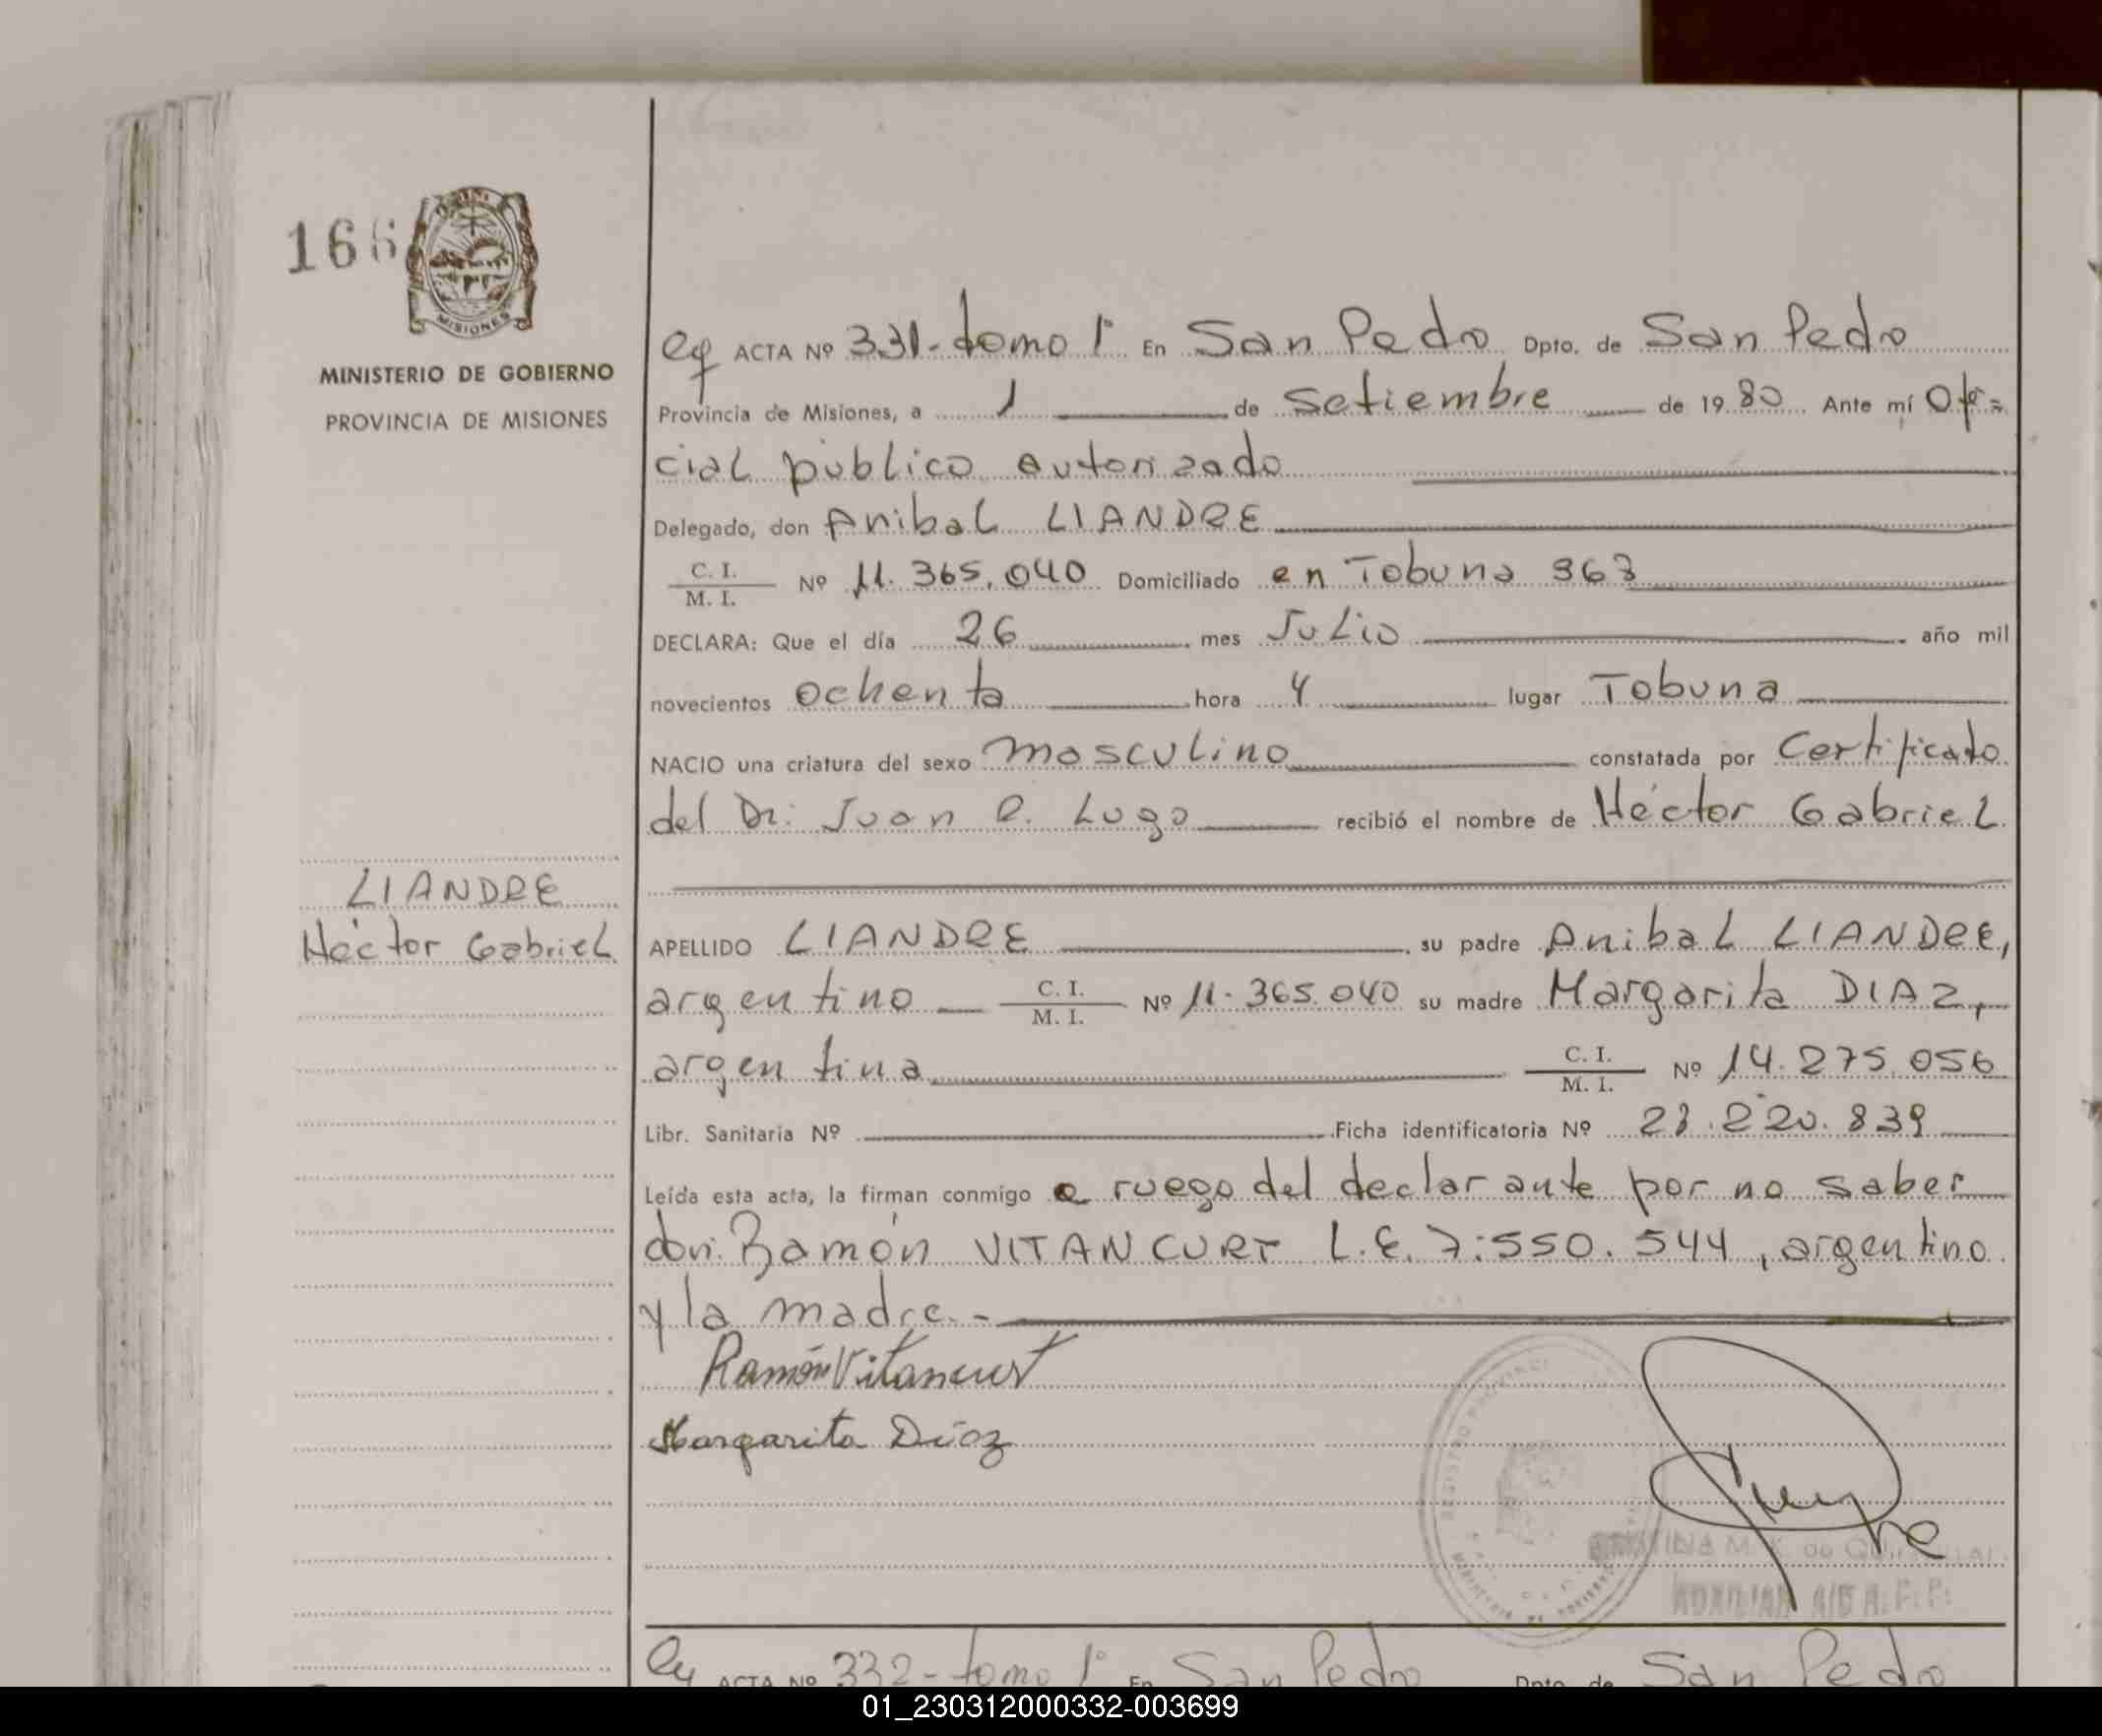 166
MISIONES
MINISTERIO DE GOBIERNO
PROVINCIA DE MISIONES
LIANDRE
Héctor Gabriel
ACTA Nº 331-tomo 1° En San Pedro Dpto. de San Pedro
Provincia de Misiones, a 1 de Setiembre de 1980 Ante mí Ofi=
cial público autorizado
Delegado, don Anibal LIANDRE
C. I. / M. I. Nº 11.365.040 Domiciliado en Tobuna 363
DECLARA: Que el día 26 mes Julio año mil
novecientos ochenta hora 4 lugar Tobuna
NACIO una criatura del sexo masculino constatada por Certificado
del Dr. Juan R. Lugo recibió el nombre de Héctor Gabriel
APELLIDO LIANDRE su padre Anibal LIANDRE,
argentino C. I. / M. I. Nº 11.365.040 su madre Margarita DIAZ,
argentina C. I. / M. I. Nº 14.275.056
Libr. Sanitaria Nº Ficha identificatoria Nº 28.220.839
Leída esta acta, la firman conmigo a ruego del declarante por no saber
don: Ramón VITANCURT L.E. 7.550.544, argentino
y la madre.-
Ramón Vitancurt
Margarita Díaz
AUXILIAR
ACTA Nº 332-tomo 1° En San Pedro Dpto. de San Pedro
01_230312000332-003699